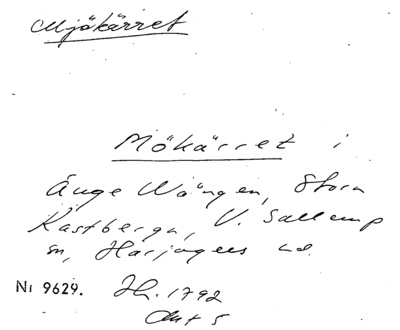 Mjökärret
Mökärret i
Änge Wängen, Stora
Kastberga, V. Sallerup
sn, Harjagers hd.
Nr 9629. Jh. 1792
Akt 5